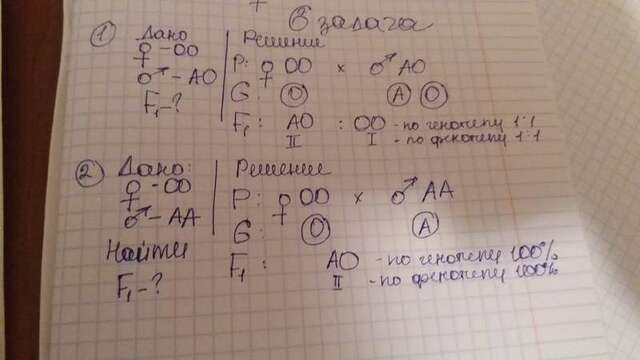 6 задача
① Дано | Решение
♀ - OO
♂ - AO
F₁ - ?
P: ♀ OO × ♂ AO
G: O A O
F₁: AO : OO - по генотипу 1:1
II I - по фенотипу 1:1
② Дано: | Решение
♀ - OO
♂ - AA
Найти
F₁ - ?
P: ♀ OO × ♂ AA
G: O A
F₁: AO - по генотипу 100%
II - по фенотипу 100%